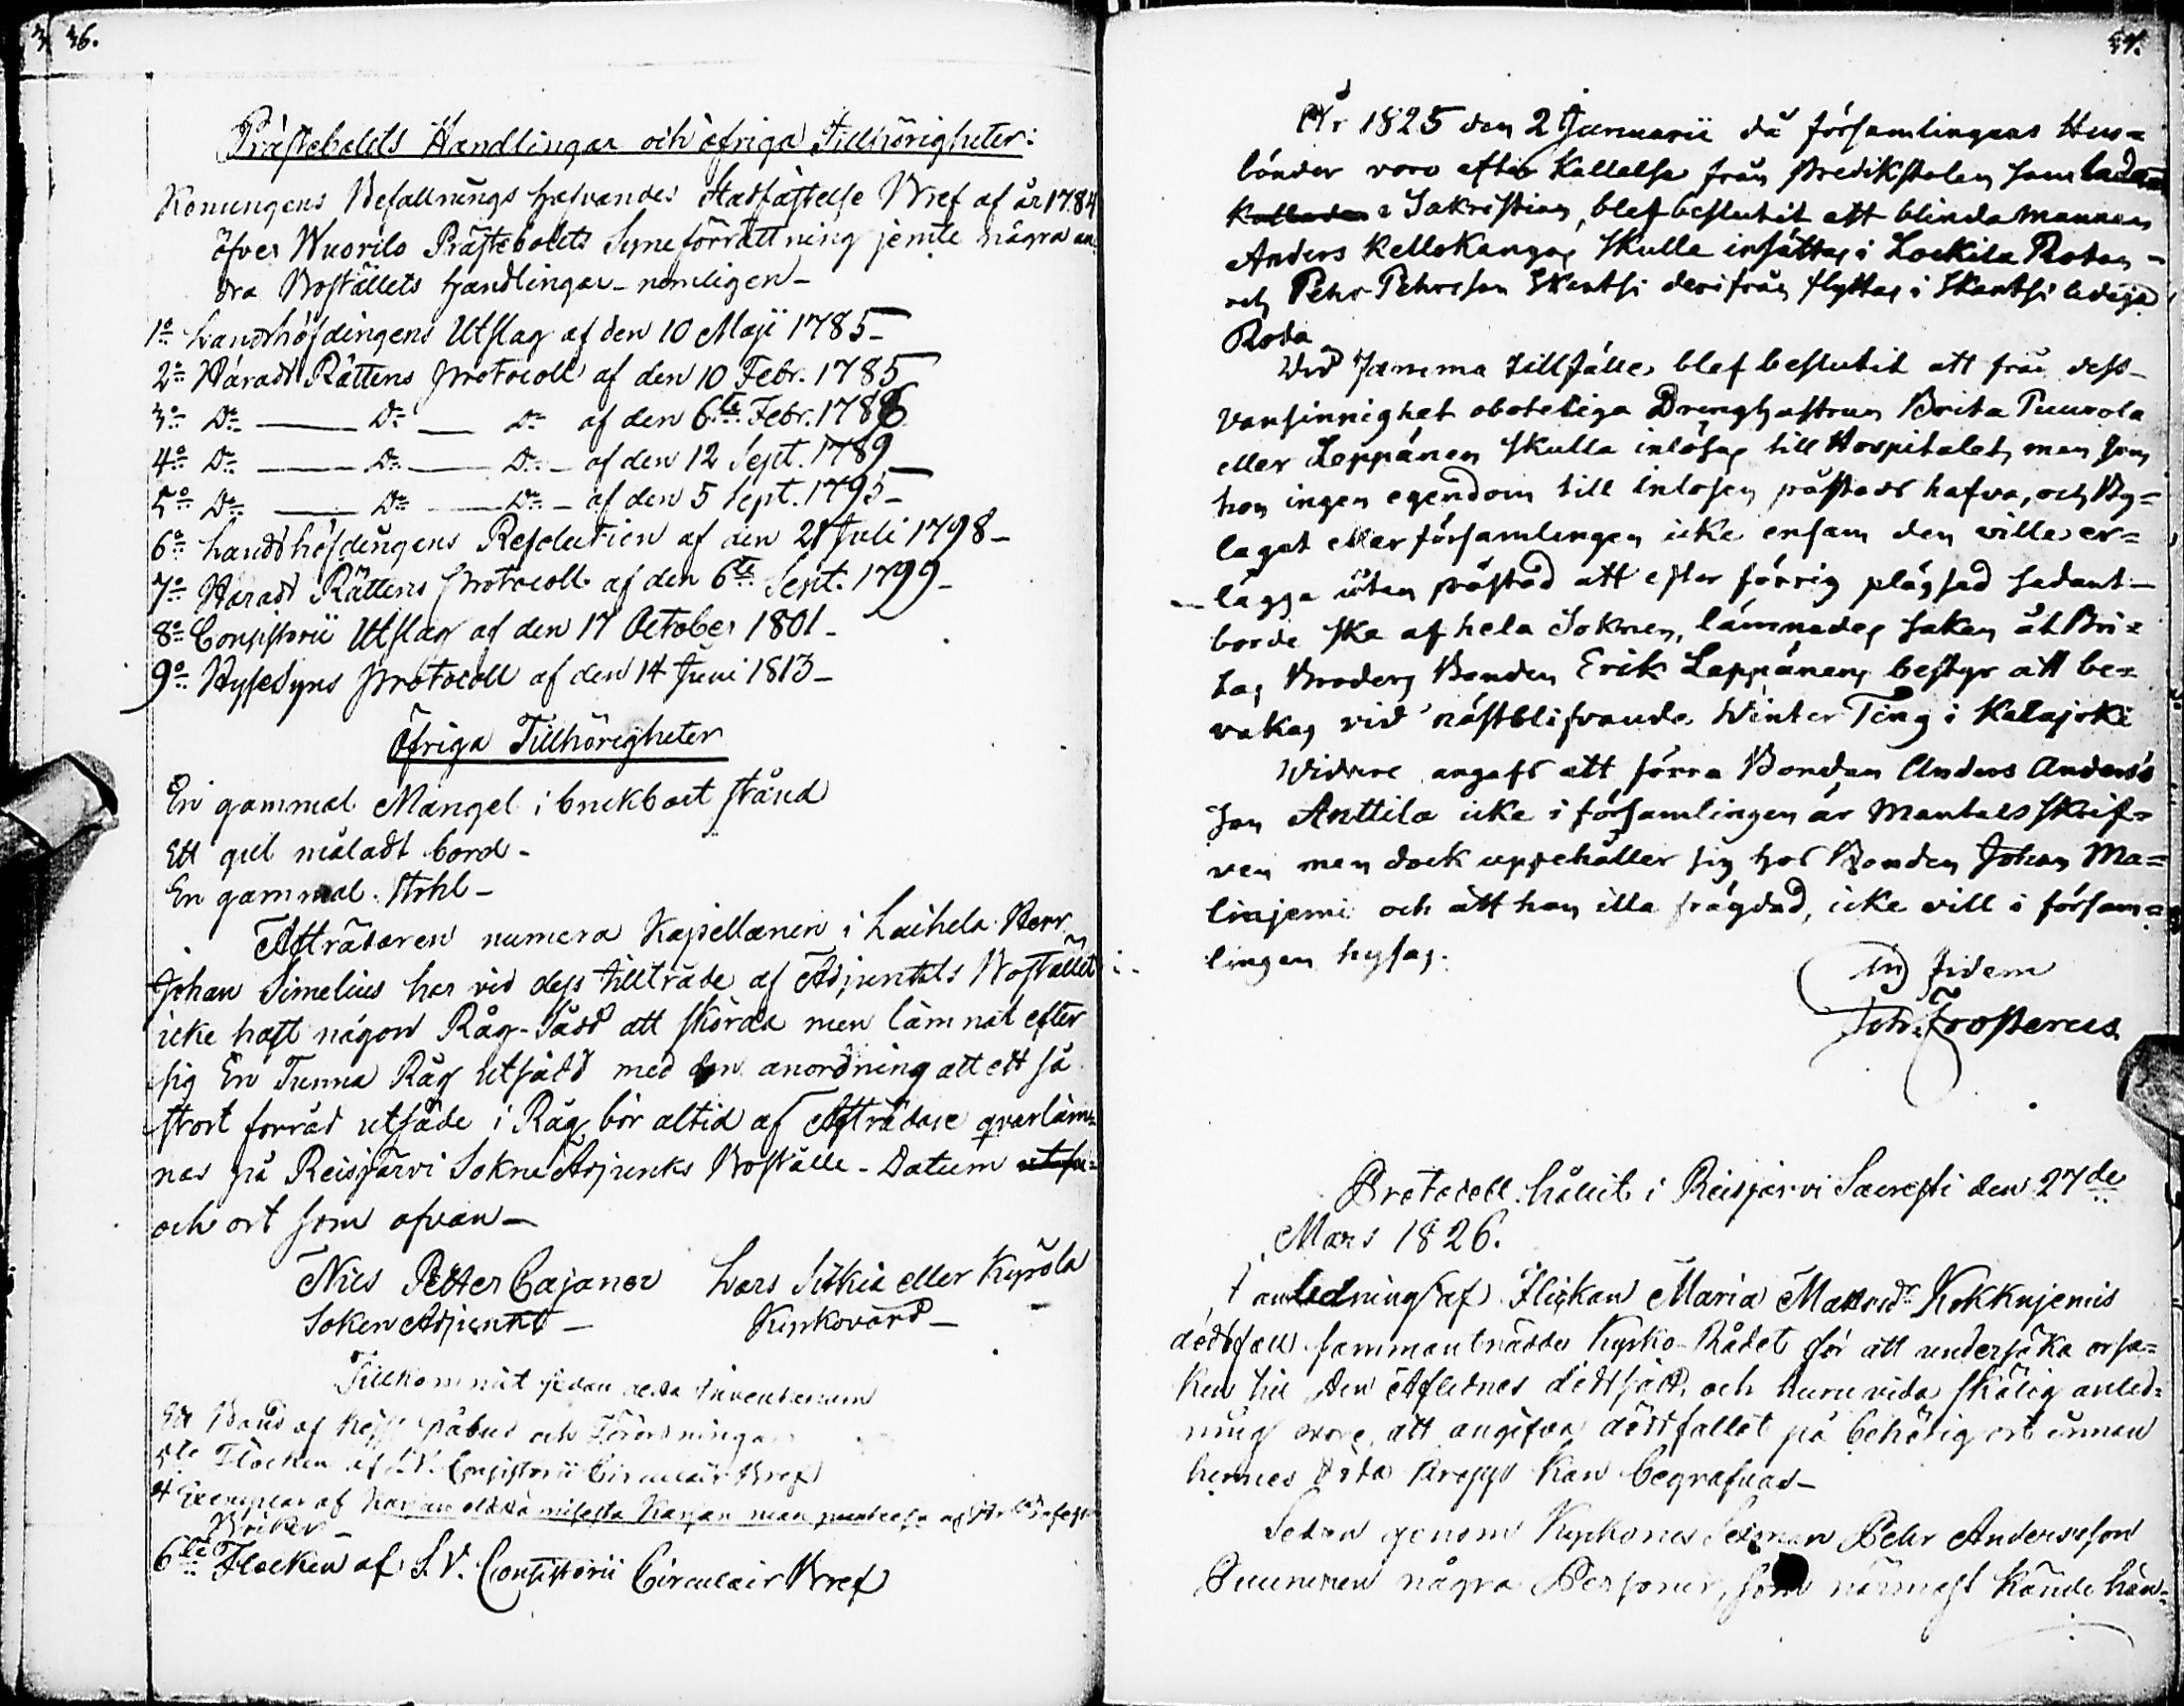 36.
Prästebolets Handlingar och öfriga Tillhörigheter:
Konungens Befallnings hafvandes Stadfästelse Bref af år 1784
öfver Wuorilo Prästebolets Syneförrättning jemte några an
dra Boställets handlingar – nemligen –
1o Landshöfdingens Utslag af den 10 Maji 1785 –
2o Härads Rättens Protocoll af den 10 Febr. 1785
3o Do — Do — Do af den 6te Febr. 1786
4o Do — Do — Do – af den 12 Sept. 1789
5o Do — Do — Do – af den 5 Sept. 1795 –
6o Landshöfdingens Resolution af den 21 Juli 1798 –
7o Härads Rättens Protocoll af den 6te Sept. 1799 –
8o Consistorii Utslag af den 17 October 1801 –
9o Hysesyns Protocoll af den 14 Juni 1813 –
Öfriga Tillhörigheter
En gammal Mangel i brukbart stånd
Ett gul måladt bord –
En gammal Stohl –
Afträdaren numera Kapellanen i Laihela Herr
Johan Simelius har vid dess tillträde af Adjuncts Bostället
icke haft någon Råg-Sådd att skörda men lämnat efter
sig En Tunna Råg utsådd med den anordning att ett så
stort förråd utsäde i Råg bör altid af Afträdare qvarläm-
nas på Reisjärvi Sokne Adjuncts Boställe – Datum
och ort som ofvan –
Nils Petter Cajanor Lars Sitkia eller Kyrölä
Soken Adjunkt – Kyrkovärd –
Tillkommit sedan detta Inventarium
Ett Band af Kejs. Påbud och Förordningar
5te Flocken af S.V. Consistorii Circulair Bref
4 Exemplar af
Böcker –
6te Flocken af S.V. Consistorii Circulair Bref
37.
År 1825 den 2 Januarii då församlingens Hus-
bönder voro efter Kallelse från Predikstolen samlade
Kallade i Sakristian, blef beslutit att blinda mannen
Anders Kellokangas skulle insättas i Lockila Rotan –
och Pehr Pehrsson Skantsi derifrån flyttas i Skantsi lediga
Rota
Wid samma tillfälle blef beslutit att från dess
vansinnighet oboteliga Drenghustrun Brita Puurola
eller Leppänen skulle inlösas till Hospitalet, men som
hon ingen egendom till inlösen påstods hafva, och By-
laget eller församlingen icke ensam den ville er-
lägga utan påstod att efter förrig plägsed sådant
borde ske af hela Soknen, lämnades saken åt Bri-
tas Broders Bonden Erik Leppänens bestyr att be-
vakas vid nästblifvande Winter Ting i Kalajoki
Widare angafs att förra Bonden Anders Anders-
son Anttila icke i församlingen är Mantalsskrif-
ven men dock uppehåller sig hos Bonden Johan Ma-
linjemi och att han illa frägdad, icke vill i försam-
lingen hysas.
In fidem
Joh. Frosterus
Protocoll hållit i Reisjärvi Sacristi den 27de
Mars 1826.
I anledning af Flickan Maria Matsdr Kokkonjemis
dödsfall sammanträdde Kyrko Rådet för att undersöka orsa-
ken till den Aflednes dödssätt, och huruvida skälig anled-
ning vore att angifva dödsfallet på behörig ort innan
hennes döda kropp kan begrafvas –
Sedan genom Kyrkones Sexman Pehr Andersson
Puumnen några Personer, som närmast kände hän-